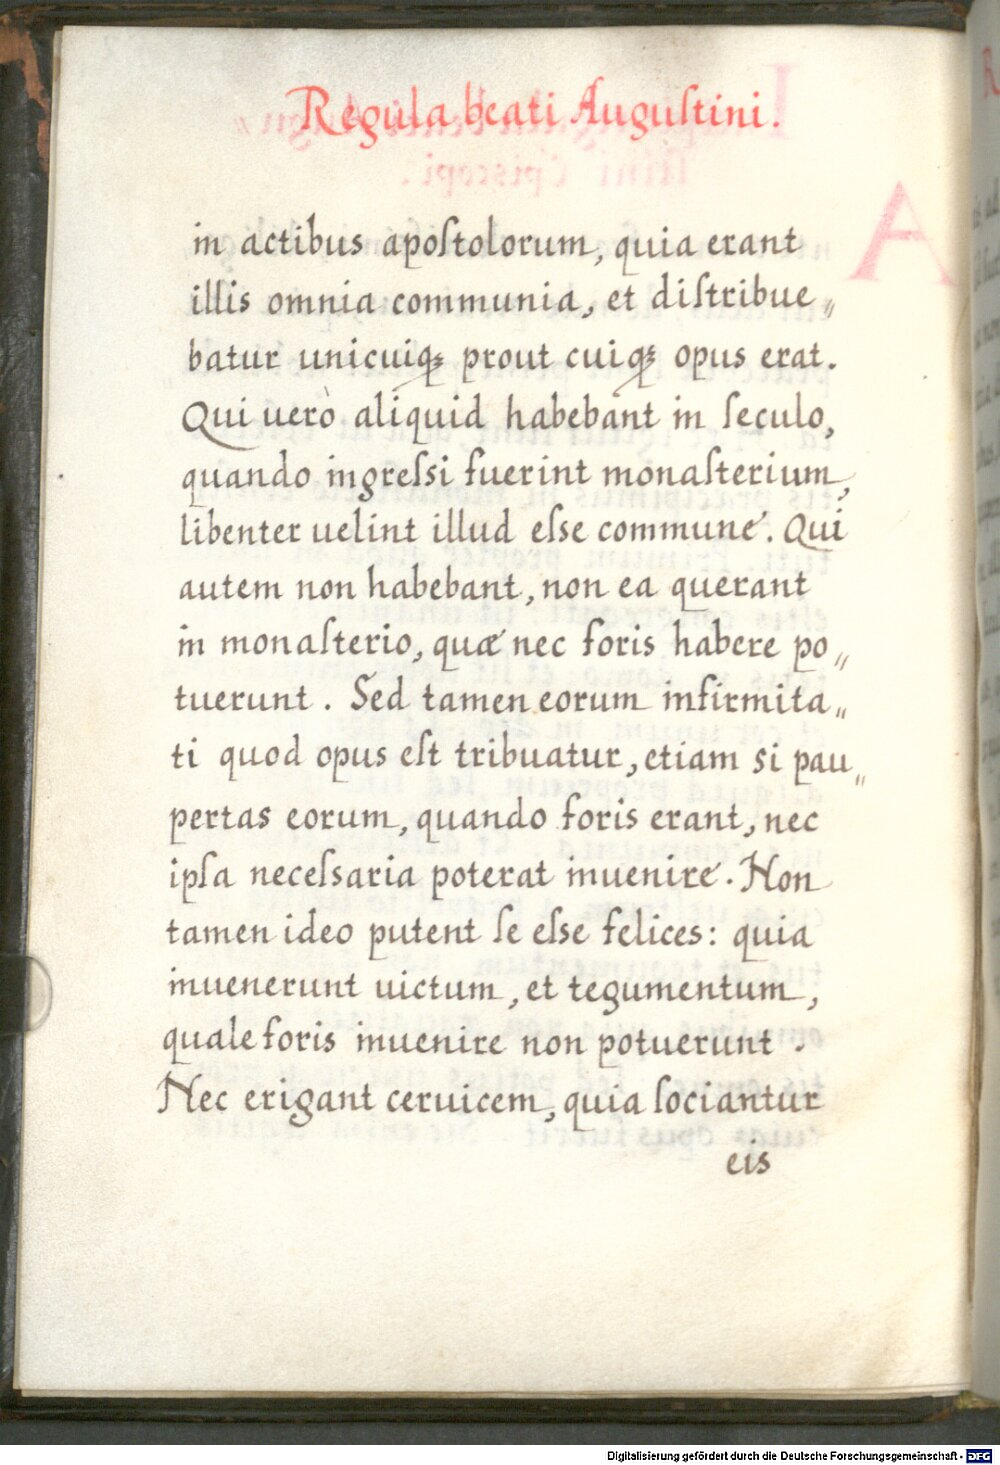 Regula beati Auguſtini.
in actibus apoſtolorum, quia erant
illis omnia communia, et diſtribue„
batur unicuiqꝫ prout cuiqꝫ opus erat.
Qui uerò aliquid habebant in ſeculo,
quando ingreſsi fuerint monaſterium,
libenter uelint illud eſse commune. Qui
autem non habebant, non ea querant
in monaſterio, quæ nec foris habere po„
tuerunt. Sed tamen eorum infirmita„
ti quod opus eſt tribuatur, etiam si pau„
pertas eorum, quando foris erant, nec
ipſa neceſsaria poterat inuenire. Non
tamen ideo putent ſe eſse felices: quia
inuenerunt uictum, et tegumentum,
quale foris inuenire non potuerunt.
Nec erigant ceruicem, quia ſociantur
eis
Digitalisierung gefördert durch die Deutsche Forschungsgemeinschaft - DFG